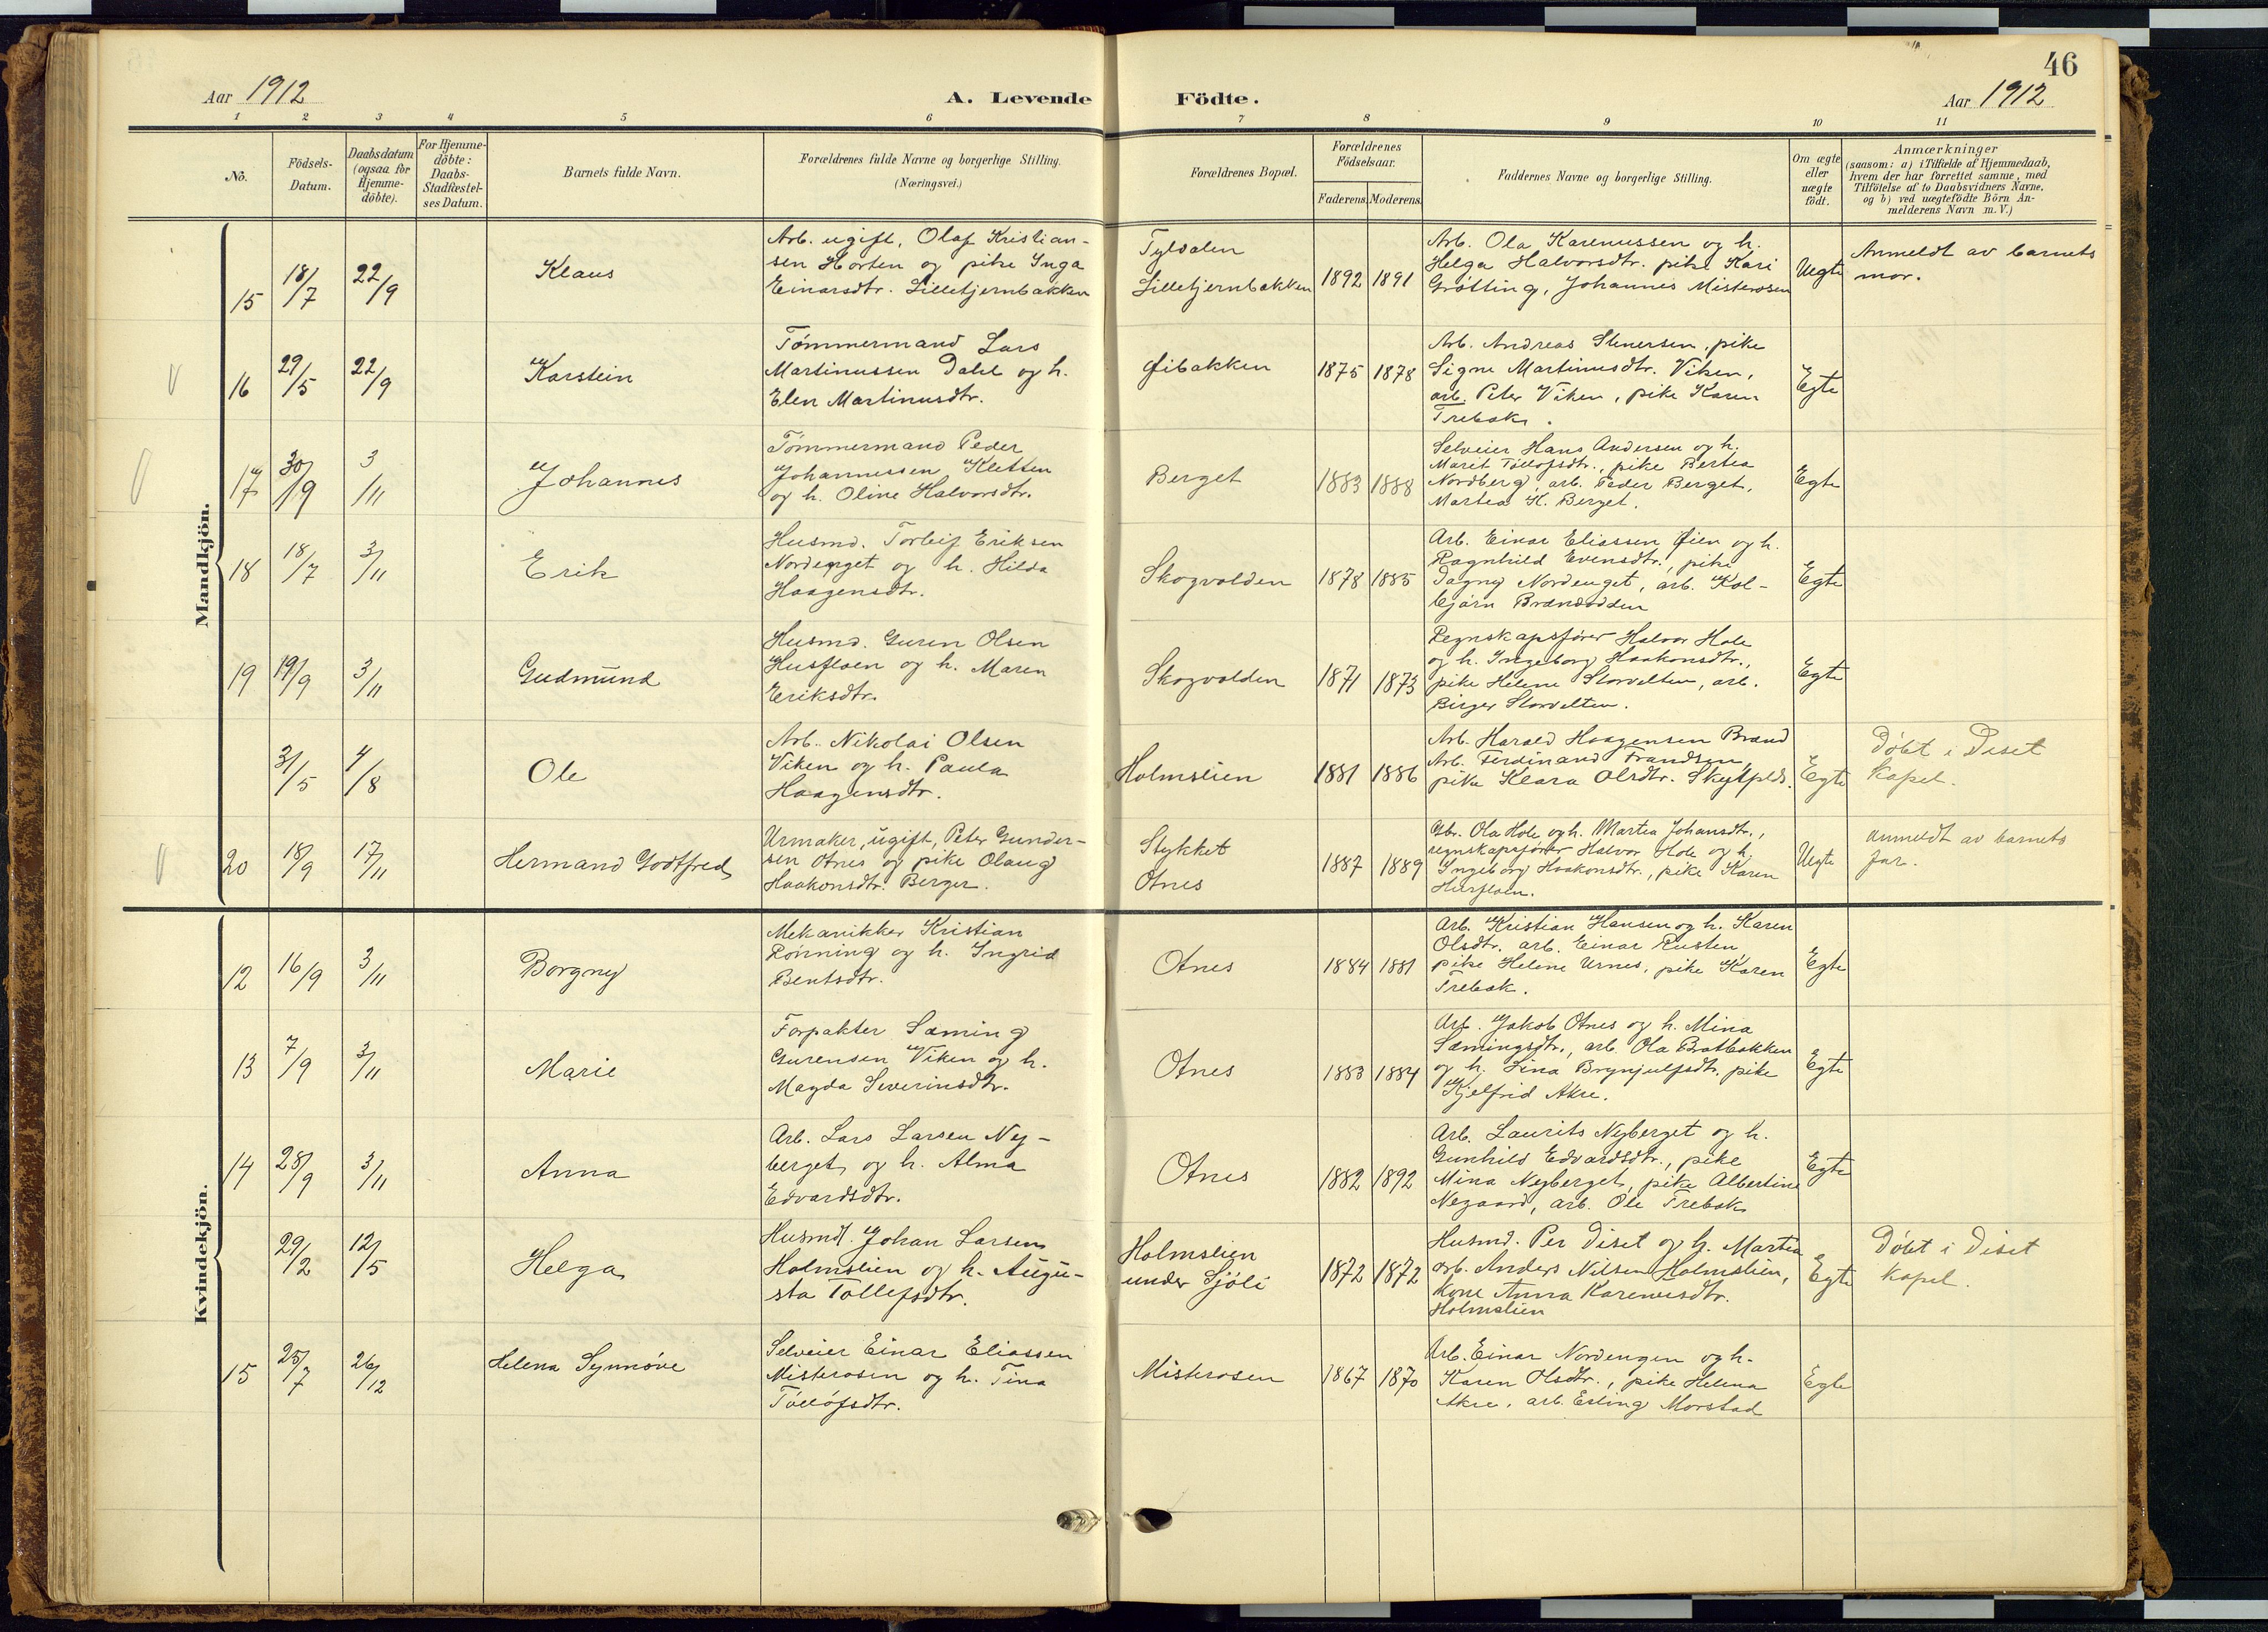 46
Aar 1912
A. Levende Födte.
Aar 1912
1 2 3 4 5 6 7 8 9 10 11
No.
Födsels-Datum.
Daabsdatum (ogsaa for Hjemme-döbte).
For Hjemme-döbte: Daabs-Stadfæstel-ses Datum.
Barnets fulde Navn.
Forældrenes fulde Navne og borgerlige Stilling.
(Næringsvei.)
Forældrenes Bopæl.
Forældrenes Födselsaar.
Faderens. Moderens.
Faddernes Navne og borgerlige Stilling.
Om ægte eller uægte födt.
Anmærkninger
(saasom: a) i Tilfælde af Hjemmedaab,
hvem der har forrettet samme, med
Tilföielse af to Daabsvidners Navne,
og b) ved uægtefödte Börn An-
melderens Navn m. V.)
Mandkjön.
15 18/7 22/9 Klaus
Arb. ugift, Olaf Kristian-
sen Horten og pike Inga
Einarsdtr. Lilletjernbakken
Tyldalen
Lilletjernbakken
1892 1891
Arb. Ola Karenussen og h.
Helga Halvorsdtr. pike Kari
Grötting, Johannes Misterosen
Uegte
Anmeldt av barnets
mor.
16 29/5 22/9 Karstein
Tømmermand Lars
Martinussen Dahl og h.
Elen Martinusdtr.
Øibakken
1875 1878
Arb. Andreas Stenersen, pike
Signe Martinusdtr. Viken,
arb. Peter Viken, pike Karen
Trebak.
Egte
17 30/9 3/11 Johannes
Tømmermand Peder
Johannessen Kletten
og h. Oline Halvorsdtr.
Berget
1883 1888
Selveier Hans Andersen og h.
Marit Tollofsdtr., pike Bertea
Nordberg, arb. Peder Berget,
Martea H. Berget.
Egte
18 18/7 3/11 Erik
Husmd. Torleif Eriksen
Nordenget og h. Hilda
Haagensdtr.
Skogvolden
1878 1885
Arb. Einar Eliassen Øien og h.
Ragnhild Evensdtr., pike
Dagny Nordenget, arb. Kol-
bjørn Brændodden
Egte
19 19/9 3/11 Gudmund
Husmd. Guren Olsen
Husfloen og h. Maren
Eriksdtr.
Skogvolden
1871 1873
Regnskapsfører Halvor Hole
og h. Ingeborg Haakonsdtr.,
pike Helene Storvelten, arb.
Birger Storvelten.
Egte
31/5 4/8 Ole
Arb. Nikolai Olsen
Viken og h. Paula
Haagensdtr.
Holmslien
1881 1886
Arb. Harald Haagensen Brænd
Arb. Ferdinand Frandsen,
pike Klara Olsdtr. Skytplds.
Egte
Döbt i Diset
kapel.
20 18/9 17/11 Hermand Godtfred
Urmaker, ugift, Peter Gunder-
sen Otnes og pike Olaug
Haakonsdtr. Berger.
Stykket
Otnes
1887 1889
Gbr. Ola Hole og h. Martea Johansdtr.,
regnskapsfører Halvor Hole og h.
Ingeborg Haakonsdtr., pike Karen
Husfloen.
Uegte
Anmeldt av barnets
far.
Kvindekjön.
12 16/9 3/11 Borgny
Mekanikker Kristian
Rønning og h. Ingrid
Bentsdtr.
Otnes
1884 1881
Arb. Kristian Hansen og h. Karen
Olsdtr. arb. Einar Rusten,
pike Helene Urnes, pike Karen
Trebak.
Egte
13 7/9 3/11 Marie
Forpakter Sæming
Gurensen Viken og h.
Magda Severinsdtr.
Otnes
1883 1884
Arb. Jakob Otnes og h. Mina
Sæmingsdtr., arb. Ola Bratbakken
og h. Lina Brynjulfsdtr. pike
Kjelfrid Akre.
Egte
14 28/9 3/11 Anna
Arb. Lars Larsen Ny-
berget og h. Alma
Edvardsdtr.
Otnes
1882 1892
Arb. Laurits Nyberget og h.
Gunhild Edvardsdtr., pike
Mina Nyberget, pike Albertine
Negaard, arb. Ole Trebak
Egte
29/2 12/5 Helga
Husmd. Johan Larsen
Holmslien og h. Augu-
sta Tollefsdtr.
Holmslien
under Sjöli
1872 1872
Husmd. Per Diset og h. Martea
Arb. Anders Nilsen Holmslien,
Kone Anna Karenusdtr.
Holmslien
Egte
Döbt i Diset
kapel.
15 25/7 26/12 Helena Synnøve
Selveier Einar Eliassen
Misterosen og h. Tina
Tollöfsdtr.
Misterosen
1867 1870
Arb. Einar Nordengen og h.
Karen Olsdtr., pike Helena
Akre, arb. Erling Morstad
Egte